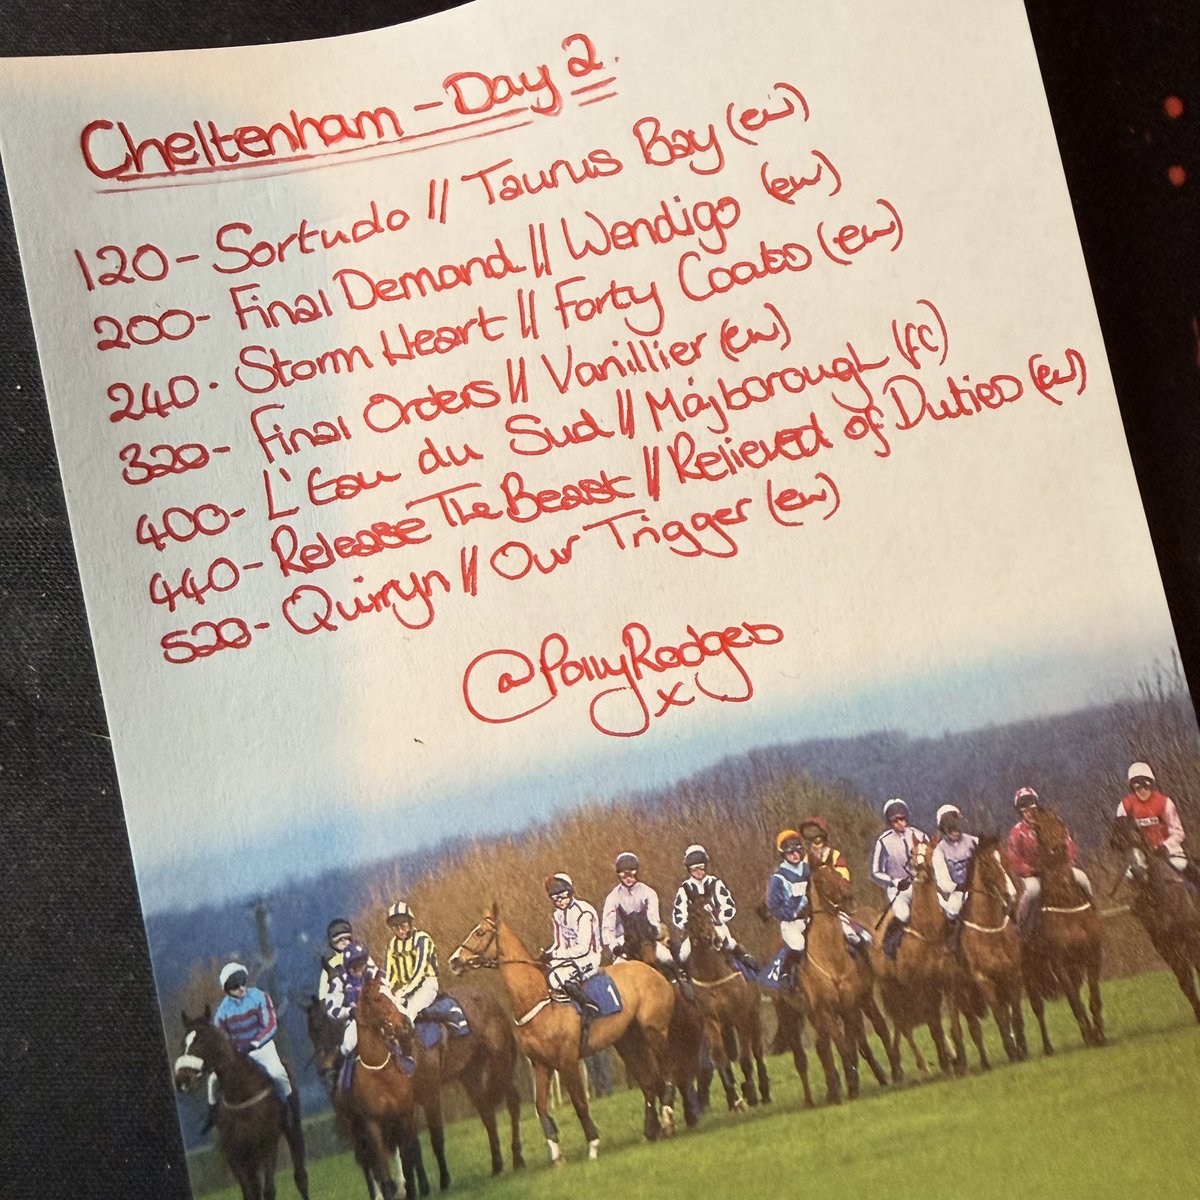 Cheltenham - Day 2.
120 - Sortudo // Taurus Bay (ew)
200 - Final Demand // Wendigo (ew)
240 - Storm Heart // Forty Coats (ew)
320 - Final Orders // Vanillier (ew)
400 - L'Eau du Sud // Majborough (FC)
440 - Release The Beast // Relieved of Duties (ew)
520 - Quirryn // Our Trigger (ew)
@PollyRodges
x
1